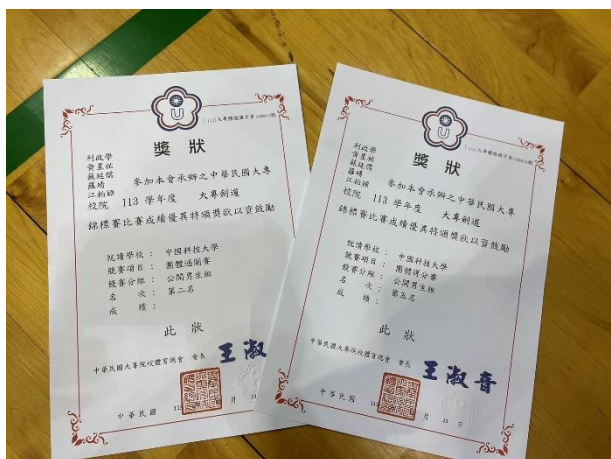 獎狀
利政學
黃星祉
蘇廷儒
羅靖
江柏穎
參加本會承辦之中華民國大專
校院 113 學年度 大專劍道
錦標賽比賽成績優異特頒獎狀以資鼓勵
就讀學校：中國科技大學
競賽項目：團體過關賽
競賽分組：公開男生組
名次：第二名
成績：
此狀
中華民國大專院校體育總會 會長 王淑
中華民國 113 月
獎狀
利政學
黃星祉
蘇廷儒
羅靖
江柏穎
參加本會承辦之中華民國大專
校院 113 學年度 大專劍道
錦標賽比賽成績優異特頒獎狀以資鼓勵
就讀學校：中國科技大學
競賽項目：團體得分賽
競賽分組：公開男生組
名次：第五名
成績：
此狀
中華民國大專院校體育總會 會長 王淑音
中華民國 113 月 日